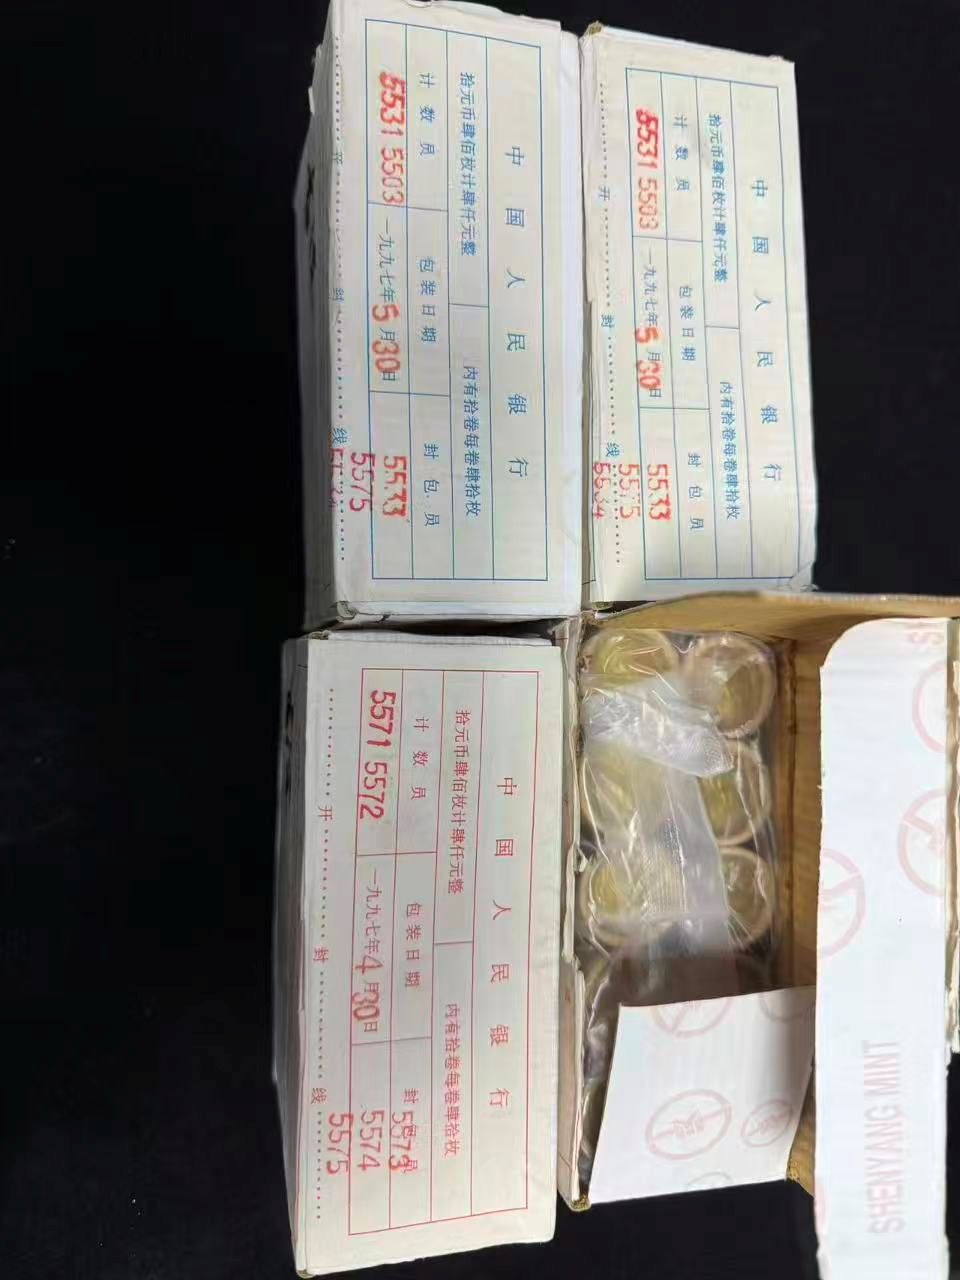 中国人民银行
拾元币肆佰枚计肆仟元整 内有拾卷每卷肆拾枚
计数员 包装日期 封包员
5531 5503 一九九七年5月30日 5533
5575
开 封 线
中国人民银行
拾元币肆佰枚计肆仟元整 内有拾卷每卷肆拾枚
计数员 包装日期 封包员
5531 5503 一九九七年5月30日 5533
5575
开 封 线 5534
中国人民银行
拾元币肆佰枚计肆仟元整 内有拾卷每卷肆拾枚
计数员 包装日期 封包员
5573
5571 5572 一九九七年4月30日 5574
5575
开 封 线
SHENYANG MINT